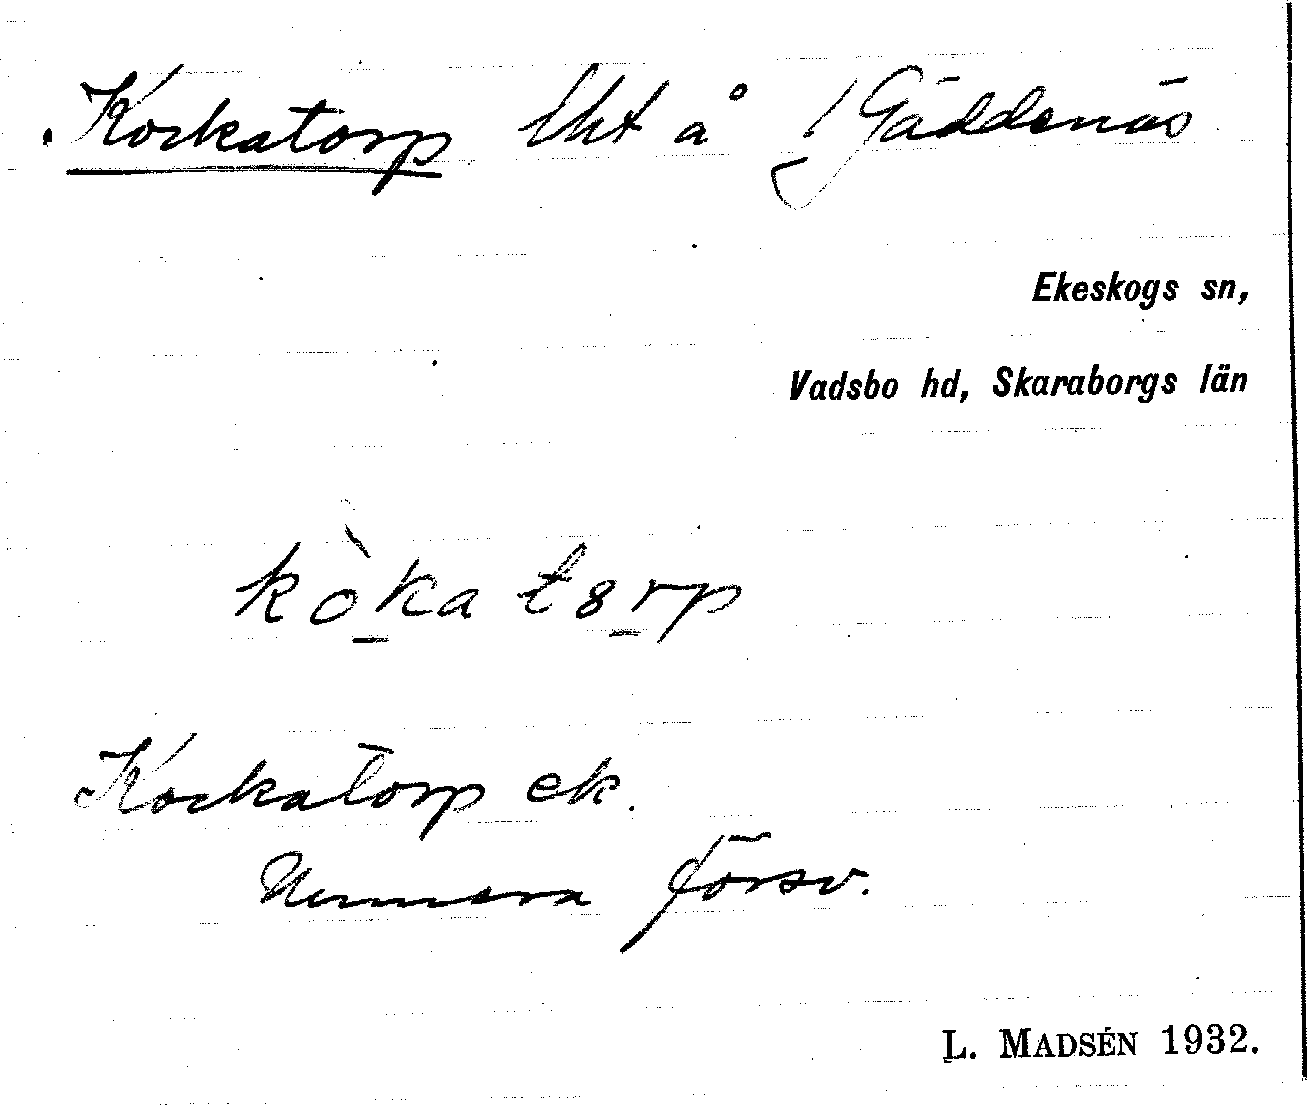 Kockatorp lht å 1 Gäddenäs
Ekeskogs sn,
Vadsbo hd, Skaraborgs län
kòka torp
Kockatorp ek.
Numera försv.
L. MADSÉN 1932.